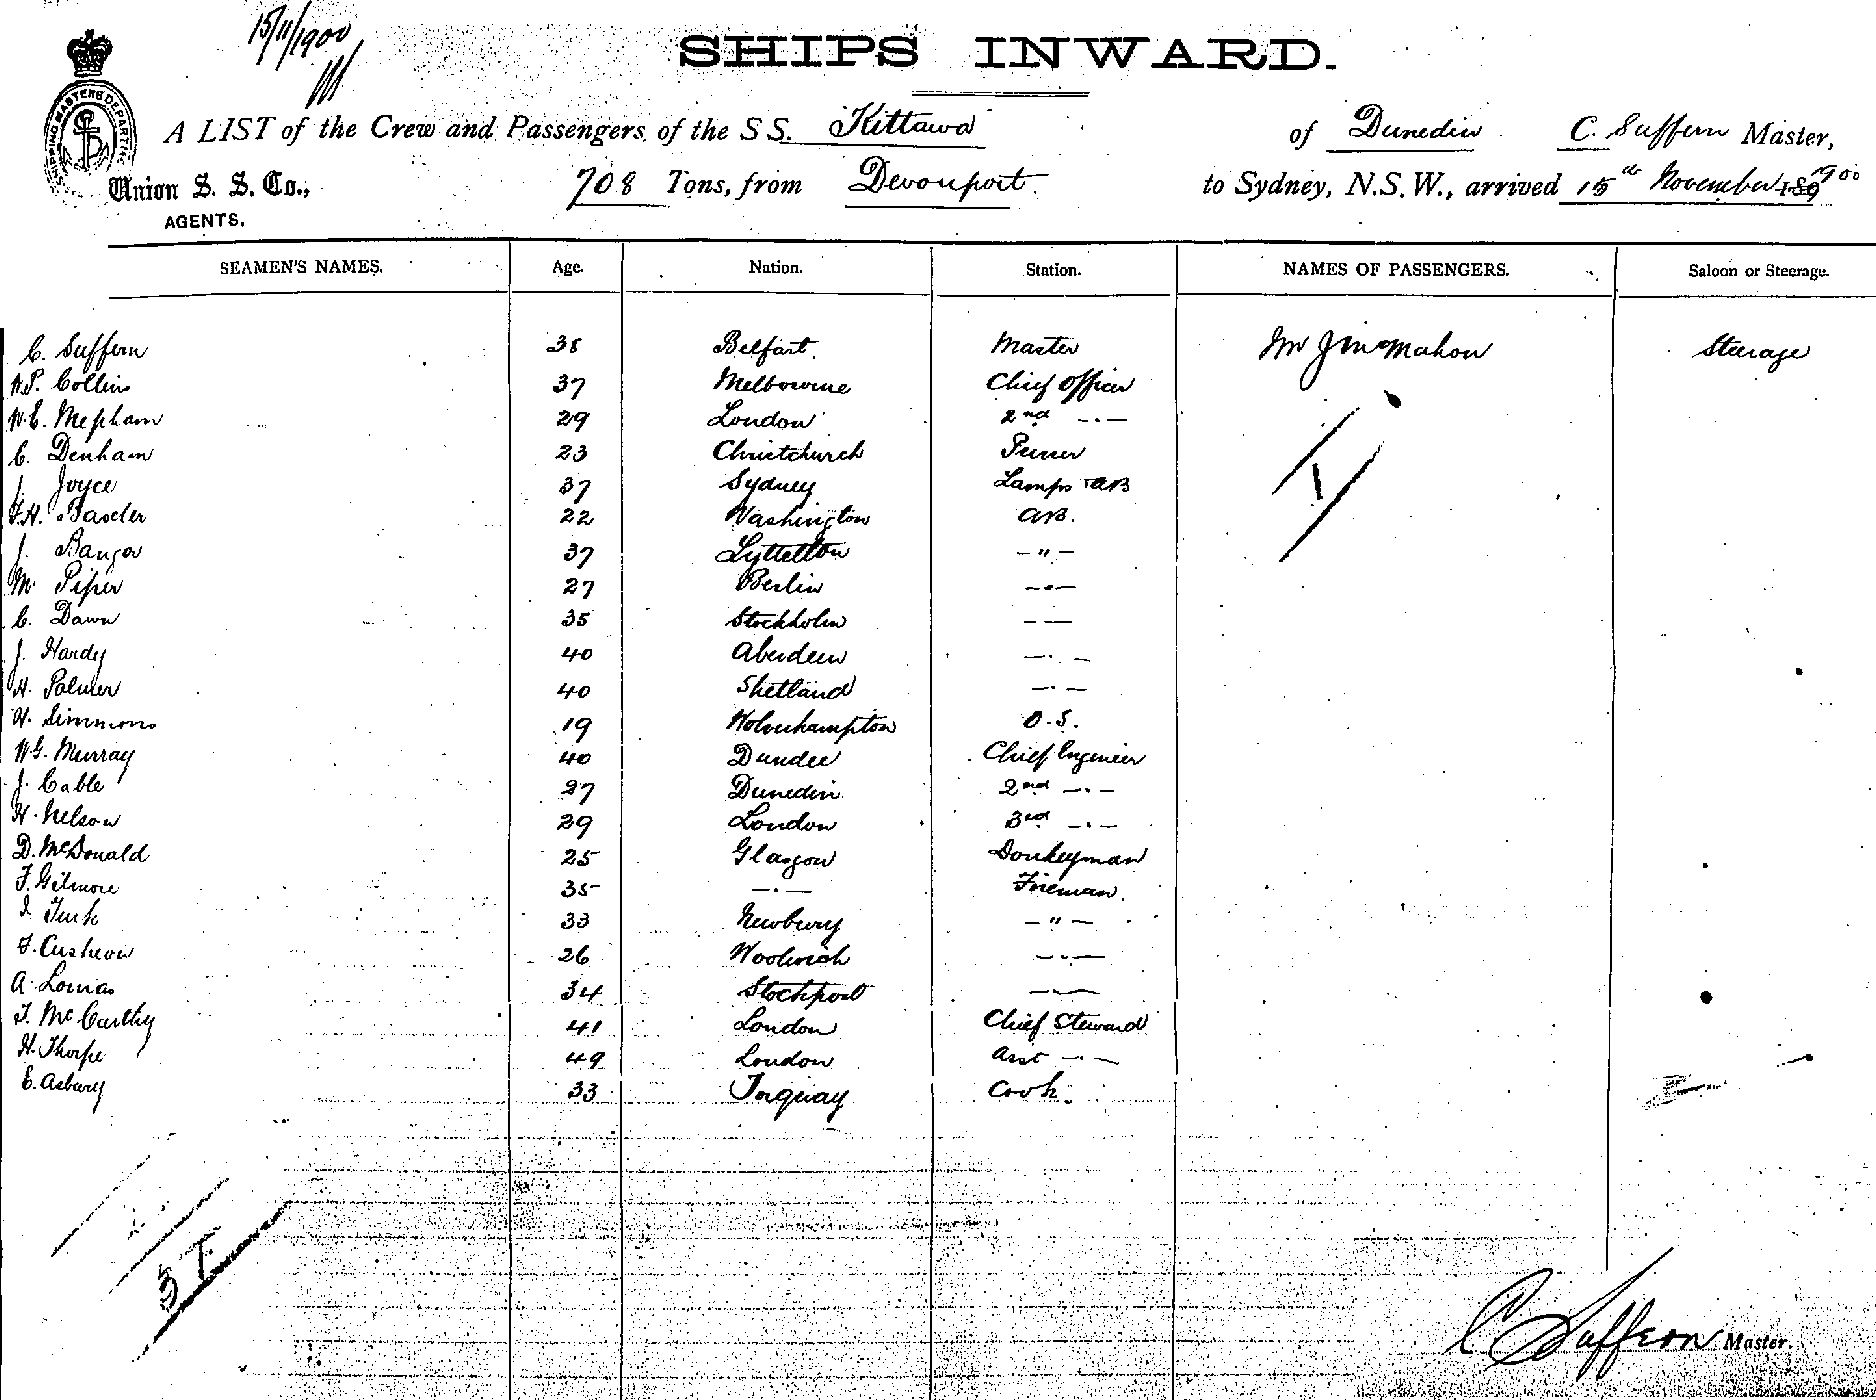 15/11/1900
SHIPS INWARD.
SHIPPING MASTERS DEPARTMENT
A LIST of the Crew and Passengers of the S.S. Kittawa of Dunedin C. Suffern Master,
Union S. S. Co.,
AGENTS.
708 Tons, from Devonport. to Sydney, N.S.W., arrived 15th November 189 1900
SEAMEN'S NAMES. Age. Nation. Station. NAMES OF PASSENGERS. Saloon or Steerage.
C. Suffern 38 Belfast. Master Mr J McMahon Steerage
W.P. Collins 37 Melbourne Chief Officer
W.E. Mepham 29 London 2nd -.-
C. Denham 23 Christchurch Purser
J. Joyce 37 Sydney Lamps AB
22 Washington AB.
J. Banger 37 Lyttelton -"-
M. Piper 27 Berlin -.-
C. Dawn 35 Stockholm - -
J. Hardy 40 Aberdeen -.-
H. Palmer 40 Shetland -.-
H. Simmons 19 Wolverhampton O.S.
W.G. Murray 40 Dundee Chief Engineer
J. Cable 27 Dunedin 2nd -.-
H. Nelson 29 London 3rd -.-
D. McDonald 25 Glasgow Donkeyman
F. Gilmore 35 -.- Fireman.
Turk 33 Newbury -"-
26 Woolwich -.-
A. Lomas 34 Stockport -.-
T. McCarthy 41 London Chief Steward
H. Thorpe 49 London Asst -.-
E. Asbury 33 Torquay Cook.
C Suffern Master.